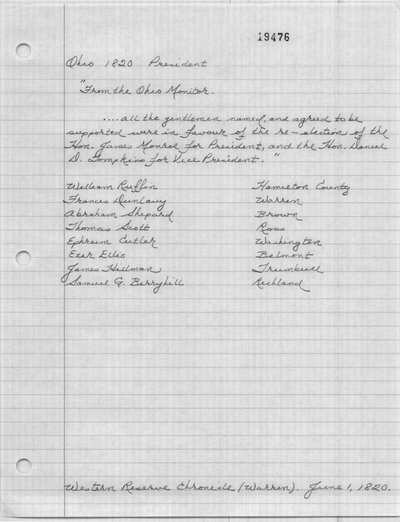 19476
Ohio 1820 President
"From the Ohio Monitor.
....all the gentlemen named, and agreed to be
supported were in favour of the re-election of the
Hon. James Monroe for President, and the Hon. Daniel
D. Tompkins for Vice President."
William Ruffin Hamilton County
Francis Dunlavy Warren
Abraham Shepard Brown
Thomas Scott Ross
Ephraim Cutlar Washington
Ezer Ellis Belmont
James Hillman Trumbull
Samuel G. Berryhill Richland
Western Reserve Chronicle (Warren). June 1, 1820.